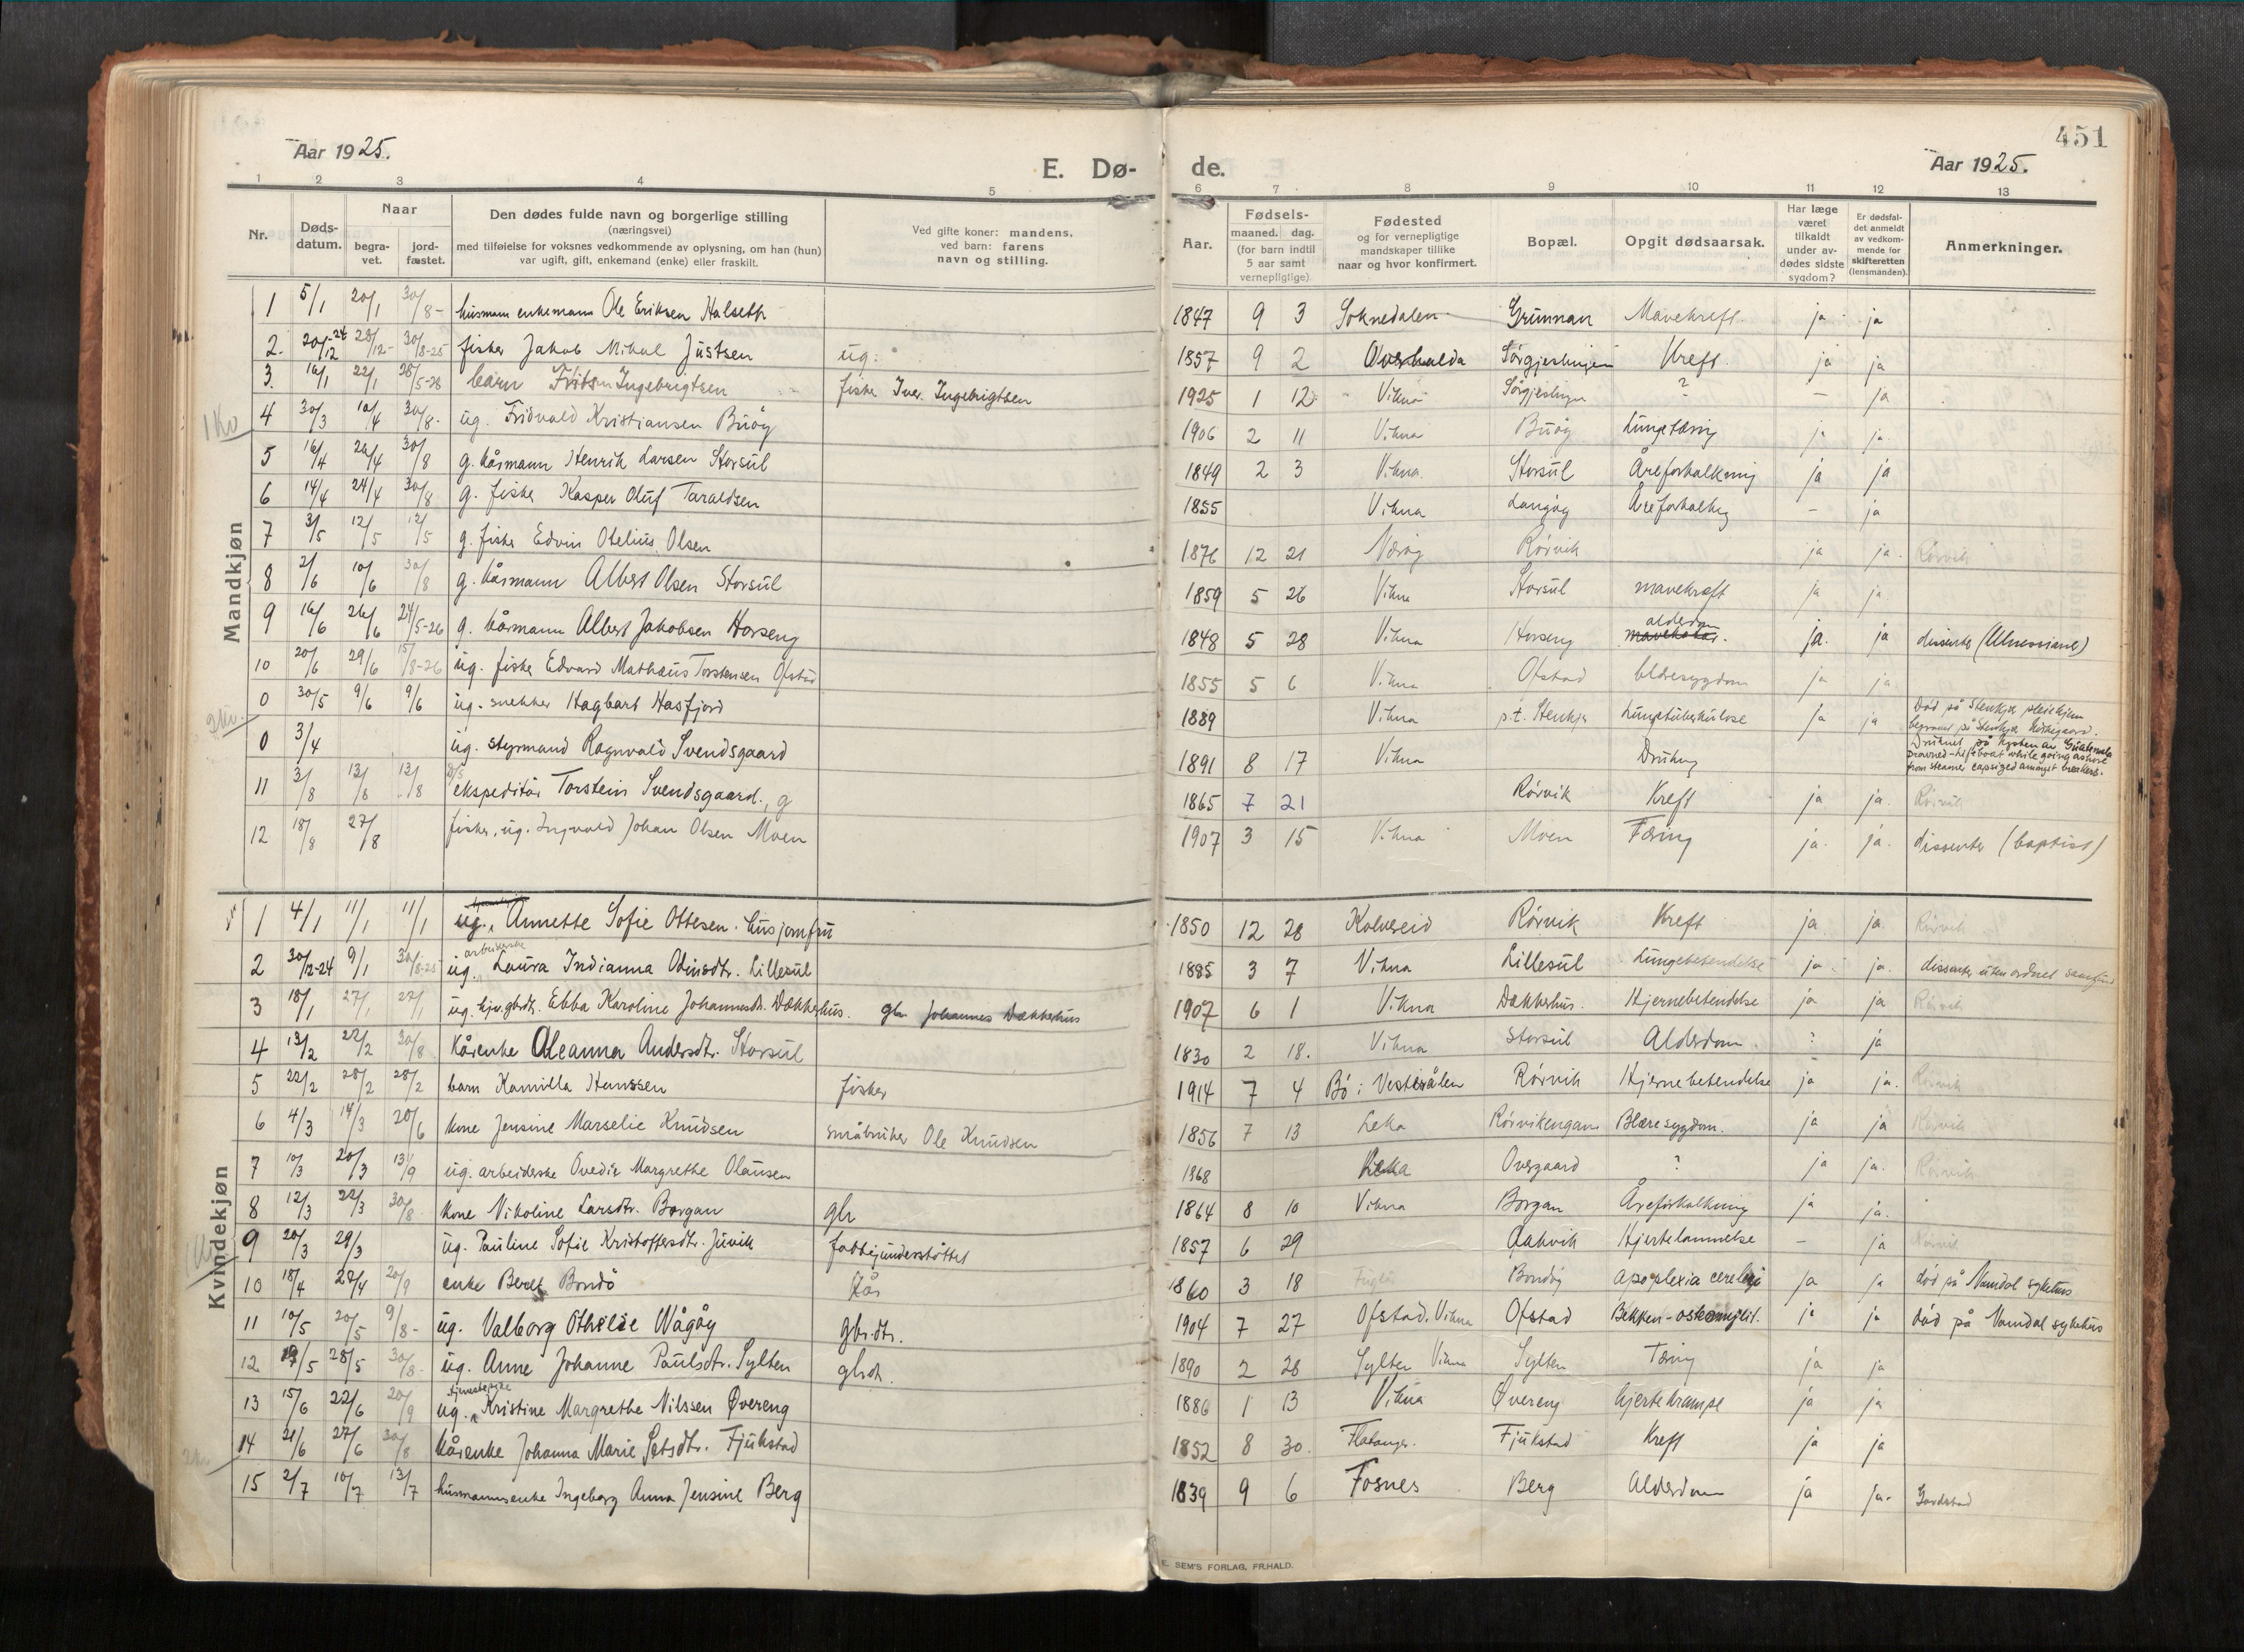 451
Aar 1925.
E. Dø-
de.
Aar 1925.
1 2 3 4 5 6 7 8 9 10 11 12 13
Nr.
Døds-
datum.
Naar
begra-
vet.
jord-
fæstet.
Den dødes fulde navn og borgerlige stilling
(næringsvei)
med tilføielse for voksnes vedkommende av oplysning, om han (hun)
var ugift, gift, enkemand (enke) eller fraskilt.
Ved gifte koner: mandens.
ved barn: farens
navn og stilling.
Aar.
Fødsels-
maaned. dag.
(for barn indtil
5 aar samt
vernepligtige)
Fødested
og for vernepligtige
mandskaper tillike
naar og hvor konfirmert.
Bopæl.
Opgit dødsaarsak.
Har læge
været
tilkaldt
under av-
dødes sidste
sygdom?
Er dødsfal-
det anmeldt
av vedkom-
mende for
skifteretten
(lensmanden).
Anmerkninger.
Mandkjøn
1 5/1 20/1 30/8- husmann enkemann Ole Eriksen Halseth 1847 9 3 Soknedalen Grunnan Mavekreft. ja ja
2. 20/12-24 28/12- 30/8-25 fisker Jakob Mikal Justsen ug. 1857 9 2 Overhalla Sørgjeslingen Kreft. ja ja
3. 16/1 22/1 28/5-28 barn Ingebrigtsen fisker Iver Ingebrigtsen 1925 1 12 Vikna ? – ja
4 30/3 10/4 30/8- ug. Fridvald Kristiansen Buøy 1906 2 11 Vikna Buøy Lungetæring ja ja.
5 16/4 26/4 30/8 g. kårmann Henrik Larsen Storsul 1849 2 3 Vikna. Storsul Åreforkalkning ja ja
6 14/4 24/4 30/8 g. fisker Kasper Oluf Taraldsen 1855 Vikna Langøy Åreforkalkng – ja
7 3/5 12/5 12/5 g. fisker Edvin Otelius Olsen 1876 12 21 Nærøy Rørvik ja ja. Rørvik
8 2/6 10/6 30/8 g. kårmann Albert Olsen Storsul 1859 5 26 Vikna Storsul mavekreft ja ja
9 16/6 26/6 24/5-26 g. kårmann Albert Jakobsen Horseng 1848 5 28 Vikna Horseng alderdom ja. ja dissenter
10 20/6 29/6 15/8-26 ug. fisker Edvard Mathæus Torstensen Ofstad 1855 5 6 Vikna Ofstad blæresygdom ja ja
0 30/5 9/6 9/6 ug. snekker Hagbart Hasfjord 1889 Vikna p.t. Stenkjer Lungetuberkulose ja ja Død på Stenkjer pleiehjem
begravet på Stenkjer kirkegaard.
0 3/4 ug. styrmand Ragnvald Svendsgaard 1891 8 17 Vikna Drukng Druknet på kysten av Guatemala
Drowned-lifeboat while going ashore
from steamer capsized amongst breakers.
11 3/8 13/8 13/8 ekspeditør Torstein Svendsgaard., g 1865 7 21 Rørvik Kreft ja ja. Rørvik
12 18/8 27/8 fisker, ug. Ingvald Johan Olsen Moen 1907 3 15 Vikna Moen Tæring ja. ja. dissenter (baptist)
Kvindekjøn
1 4/1 11/1 11/1 ug. Annette Sofie Ottesen. husjomfru 1850 12 28 Kolvereid Rørvik Kreft ja ja. Rørvik
2 30/12-24 9/1 30/8-25 ug. arbeiderske Laura Indianna Odinsdtr. Lillesul 1885 3 7 Vikna Lillesul Lungebetendelse ja ja. dissenter uten ordnet samfund
3 18/1 27/1 27/1 ug. Ebba Karoline Johannesdt. Dækkerhus. gbr Johannes Dækkerhus 1907 6 1 Vikna Dækkerhus. Hjernebetendelse ja ja Rørvik
4 13/2 22/2 30/8 kårenke Oleanna Andersdtr. Storsul 1830 2 18. Vikna Storsul Alderdom ? ja
5 22/2 28/2 28/2 barn Kamilla Hanssen fisker 1914 7 4 Bø i Vesterålen Rørvik Hjernebetendelse ja ja. Rørvik
6 4/3 14/3 20/6 kone Jensine Marselie Knudsen småbruker Ole Knudsen 1856 7 13 Leka Blæresygdom. ja ja Rørvik
7 10/3 20/3 13/9 ug. arbeiderske Ovedie Margrethe Olaussen 1868 Leka Overgaard ? ja ja. Rørvik
8 12/3 22/3 30/8 kone Nikoline Larsdtr. Borgan gbr 1864 8 10 Vikna Borgan Åreforkalkning ja ja.
9 20/3 29/3 ug. Pauline Sofie Kristoffersdtr. Juvik fattigunderstøttet 1857 6 29 Hjertelammelse – ja Rørvik
10 18/4 28/4 20/9 enke Beret Bondø Kår 1860 3 18 Bondøy apoplexia ja ja død på Namdal sykehus
11 10/5 20/5 9/8- ug. Valborg Othelie Vågøy gbr.dtr. 1904 7 27 Ofstad. Vikna Ofstad ja ja død på Namdal sykehus
12 19/5 28/5 30/8- ug. Anne Johanne Paulsdtr. Sylten gbrdt. 1890 2 28 Sylten Vikna Sylten Tæring ja ja
13 15/6 22/6 20/9 ug. tjenestepike Kristine Margrethe Nilssen Øvereng 1886 1 13 Vikna Øvereng hjertekrampe ja ja
14 21/6 27/6 30/8 kårenke Johanna Marie Petersdtr. Fjukstad 1852 8 30. Flatanger. Fjukstad Kreft ja ja
15 2/7 10/7 13/7 husmannsenke Ingeborg Anna Jensine Berg 1839 9 6 Fosnes Berg Alderdom ja ja. Gardstad
E. SEM'S FORLAG, FR.HALD.